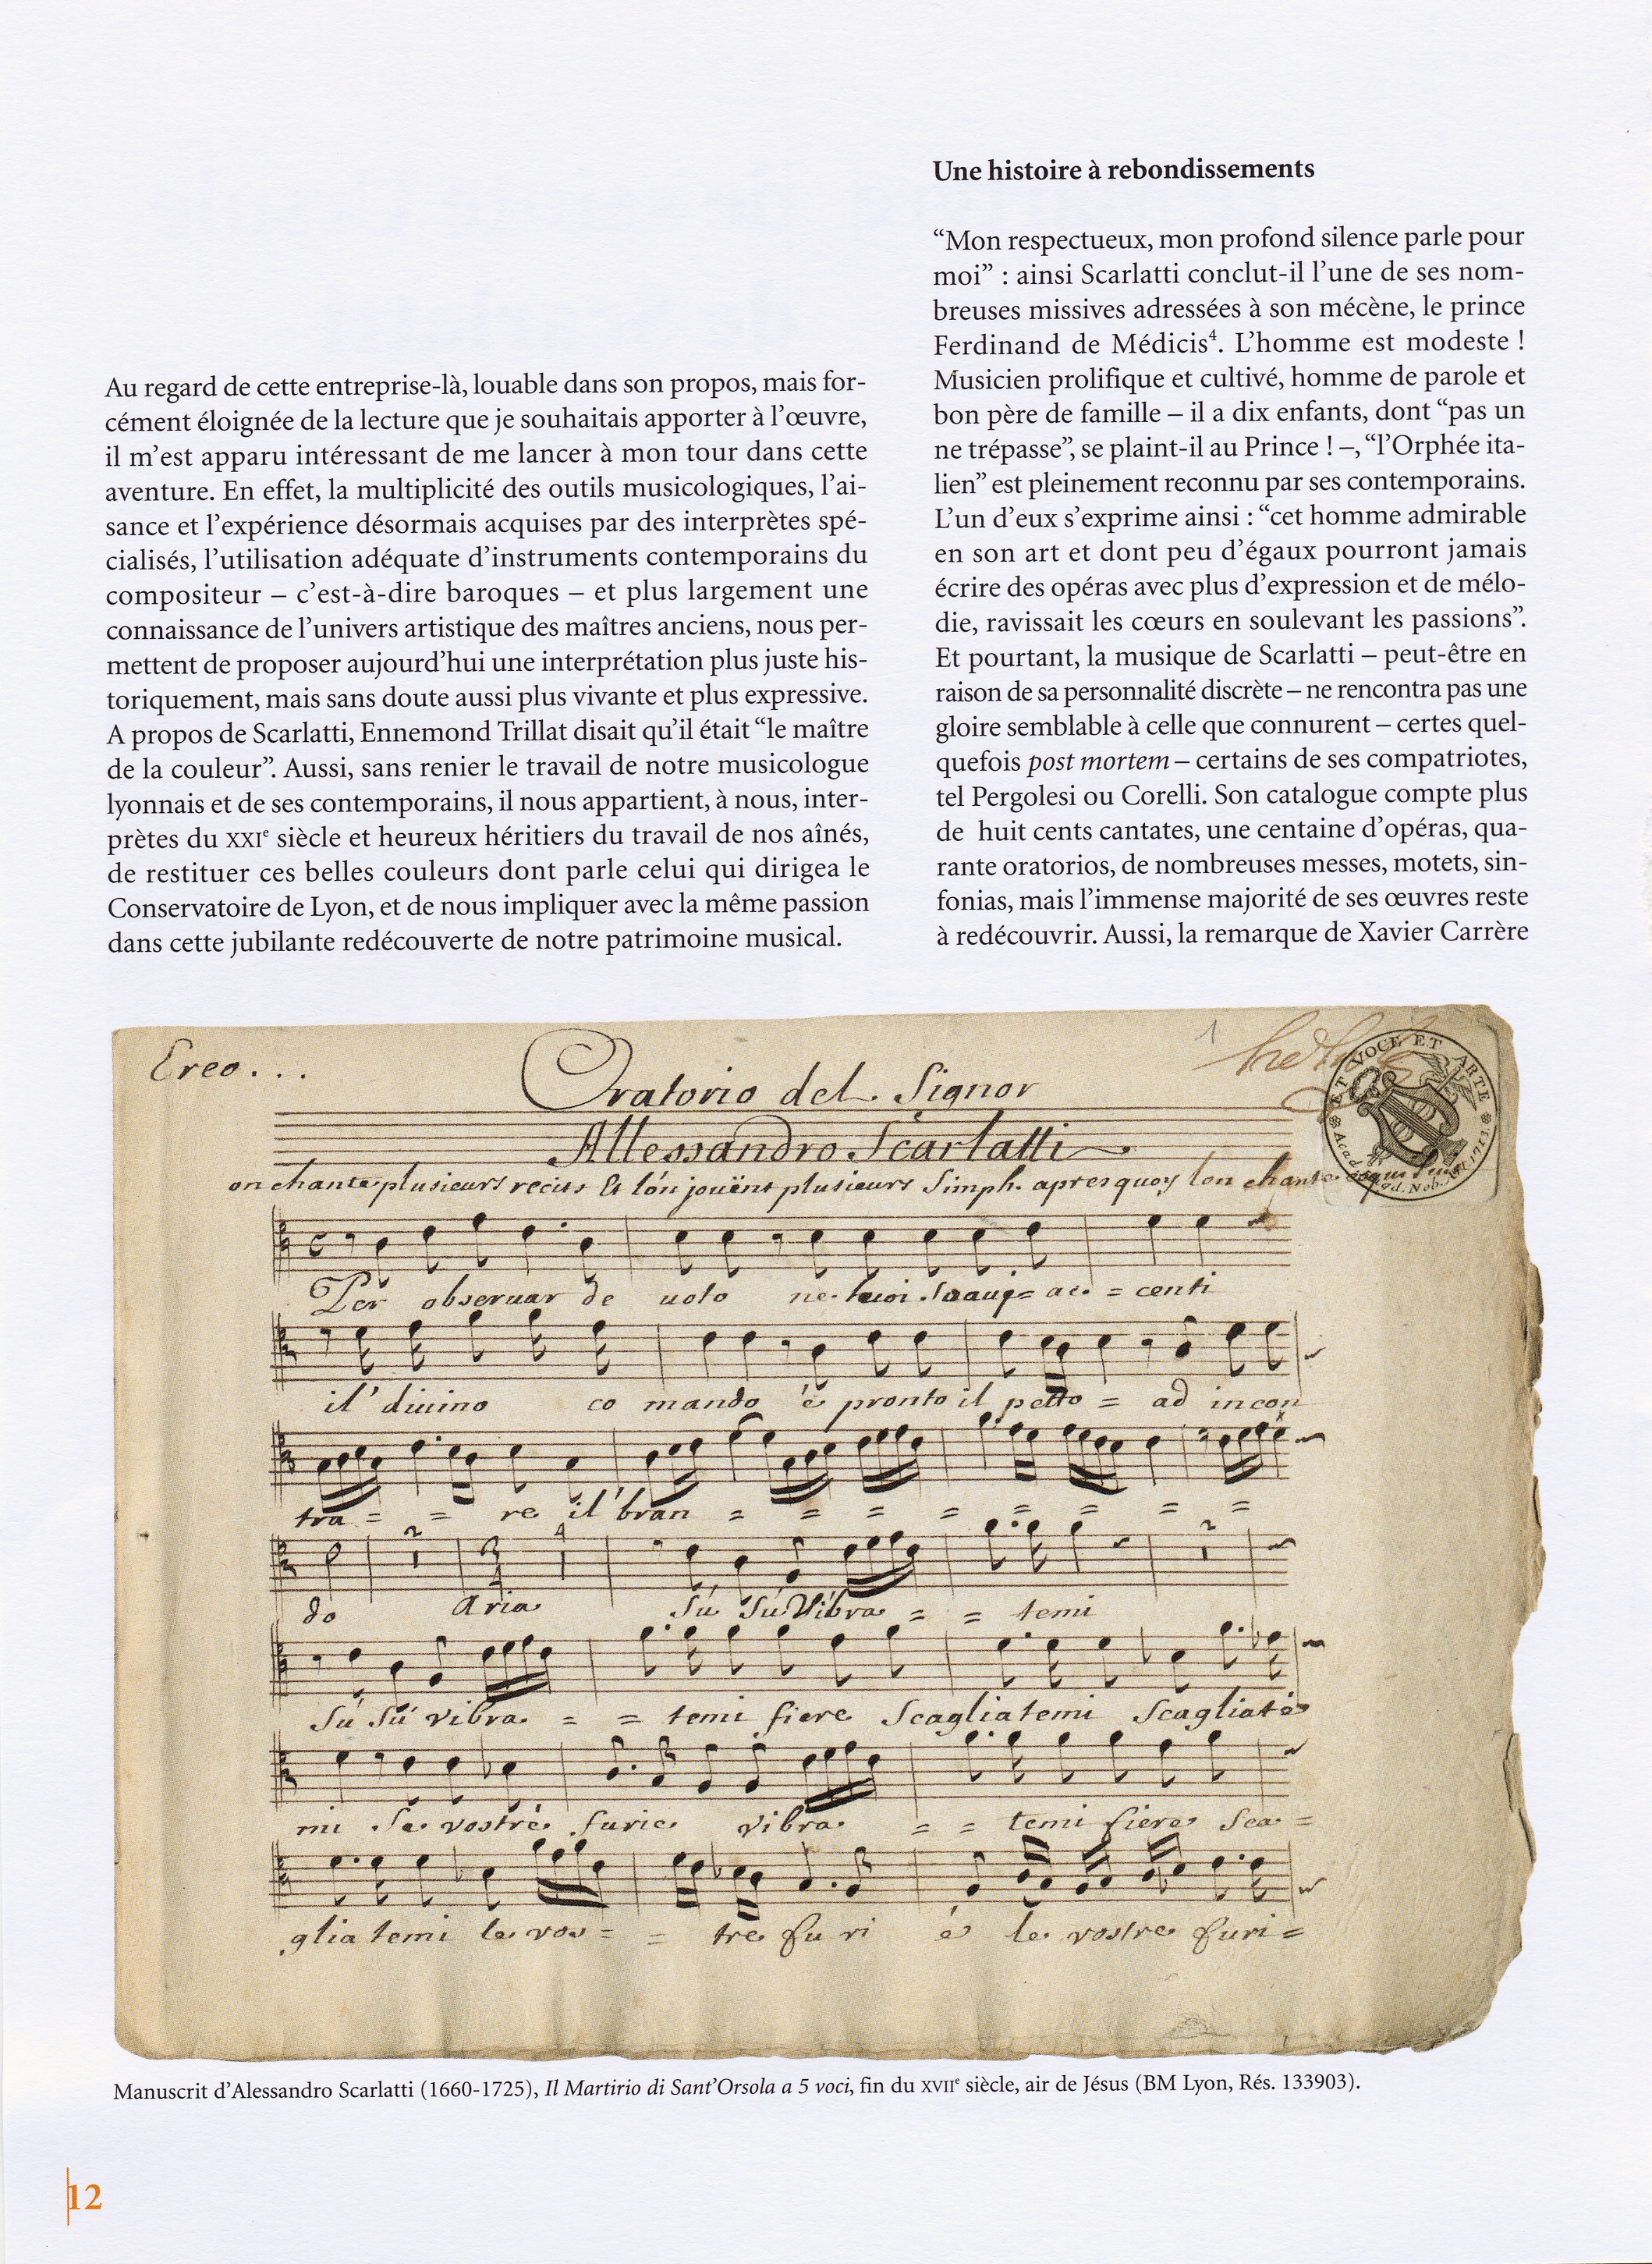 Au regard de cette entreprise-là, louable dans son propos, mais for-
cément éloignée de la lecture que je souhaitais apporter à l’œuvre,
il m’est apparu intéressant de me lancer à mon tour dans cette
aventure. En effet, la multiplicité des outils musicologiques, l’ai-
sance et l’expérience désormais acquises par des interprètes spé-
cialisés, l’utilisation adéquate d’instruments contemporains du
compositeur – c’est-à-dire baroques – et plus largement une
connaissance de l’univers artistique des maîtres anciens, nous per-
mettent de proposer aujourd’hui une interprétation plus juste his-
toriquement, mais sans doute aussi plus vivante et plus expressive.
A propos de Scarlatti, Ennemond Trillat disait qu’il était “le maître
de la couleur”. Aussi, sans renier le travail de notre musicologue
lyonnais et de ses contemporains, il nous appartient, à nous, inter-
prètes du XXIe siècle et heureux héritiers du travail de nos aînés,
de restituer ces belles couleurs dont parle celui qui dirigea le
Conservatoire de Lyon, et de nous impliquer avec la même passion
dans cette jubilante redécouverte de notre patrimoine musical.
Une histoire à rebondissements
“Mon respectueux, mon profond silence parle pour
moi” : ainsi Scarlatti conclut-il l’une de ses nom-
breuses missives adressées à son mécène, le prince
Ferdinand de Médicis4. L’homme est modeste !
Musicien prolifique et cultivé, homme de parole et
bon père de famille – il a dix enfants, dont “pas un
ne trépasse”, se plaint-il au Prince ! –, “l’Orphée ita-
lien” est pleinement reconnu par ses contemporains.
L’un d’eux s’exprime ainsi : “cet homme admirable
en son art et dont peu d’égaux pourront jamais
écrire des opéras avec plus d’expression et de mélo-
die, ravissait les cœurs en soulevant les passions”.
Et pourtant, la musique de Scarlatti – peut-être en
raison de sa personnalité discrète – ne rencontra pas une
gloire semblable à celle que connurent – certes quel-
quefois post mortem – certains de ses compatriotes,
tel Pergolesi ou Corelli. Son catalogue compte plus
de huit cents cantates, une centaine d’opéras, qua-
rante oratorios, de nombreuses messes, motets, sin-
fonias, mais l’immense majorité de ses œuvres reste
à redécouvrir. Aussi, la remarque de Xavier Carrère
Ereo...
1
Oratorio del Signor
Allessandro Scarlatti
on chante plusieurs recits Et lón jouënt plusieurs Simph. apres quoy lon chante
ET VOCE ET ARTE
Per observar de uoto ne tuoi soaui = ac = centi
il' diuino co mando é pronto il petto = ad incon
tra = = re il' bran = = = = = = = =
do Aria Sú Sú Vibra = = temi
Sú Sú vibra = = temi fiere Scagliatemi Scagliate
mi le vostre furie vibra = = temi fiere sca =
glia temi le vos = = tre fu ri é le vostre furi =
Manuscrit d’Alessandro Scarlatti (1660-1725), Il Martirio di Sant’Orsola a 5 voci, fin du XVIIe siècle, air de Jésus (BM Lyon, Rés. 133903).
12